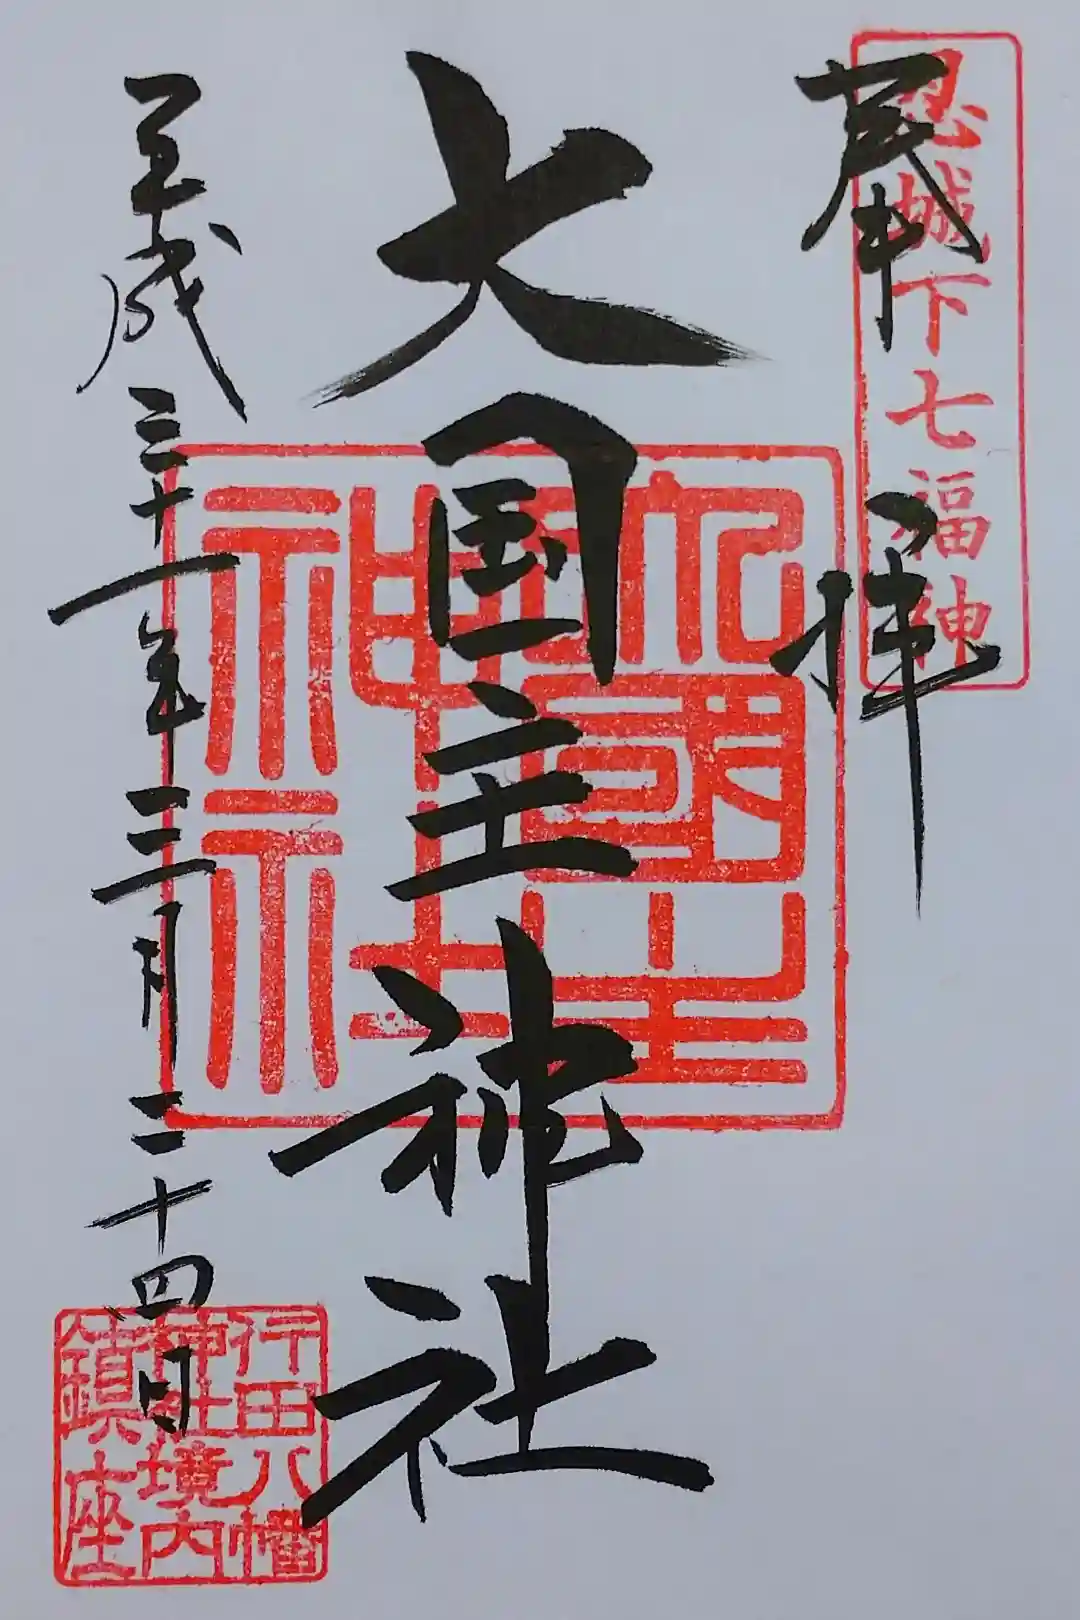 奉拝
忍城下七福神
大国主神社
大國主神社
平成三十一年三月二十四日
行田八幡
神社境内
鎮座